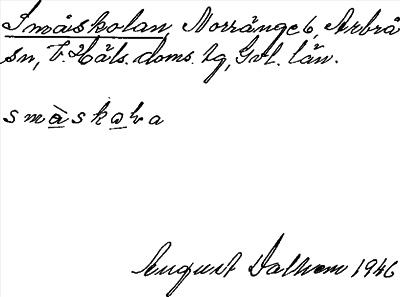 Småskolan, Norränge 6, Arbrå
sn, V. Häls. doms. lg, Gvl. län.
småskola
August Dalhem 1946